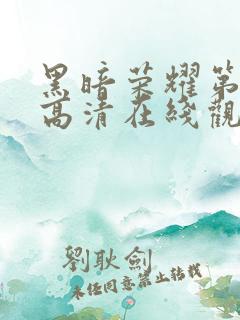 黑暗荣耀第
高清在线觀
劉耿劍
未经同意禁止转载